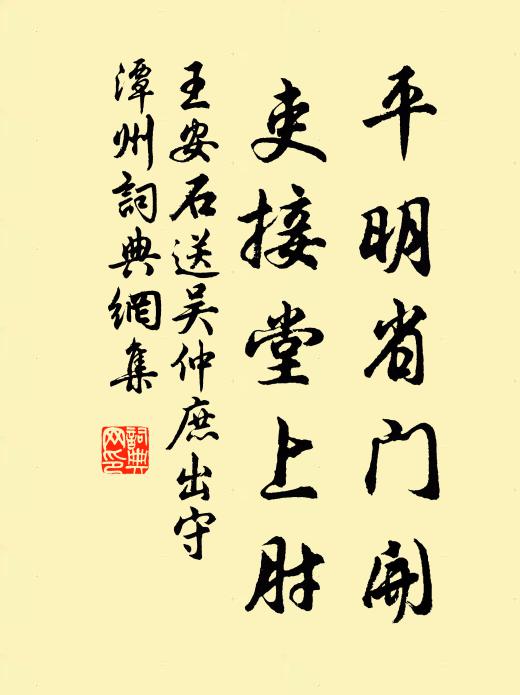 平明省门開
吏接堂上肘
王安石送吴仲庶出守
潭州詞典網集
詞典网印